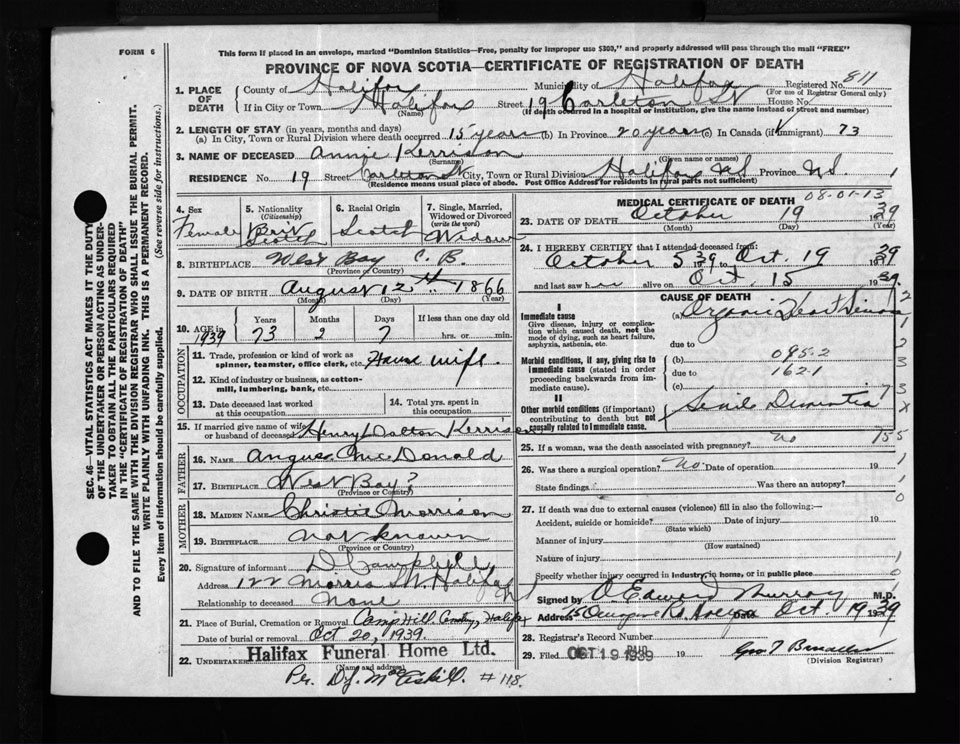 FORM 6
This form if placed in an envelope, marked "Dominion Statistics—Free, penalty for improper use $300," and properly addressed will pass through the mail "FREE"
PROVINCE OF NOVA SCOTIA—CERTIFICATE OF REGISTRATION OF DEATH
Registered No. 811
(For use of Registrar General only)
1. PLACE OF DEATH
County of Halifax Municipality of Halifax
If in City or Town Halifax Street 19 Carleton St House No.
(Name) (If death occurred in a hospital or institution, give the name instead of street and number)
2. LENGTH OF STAY (in years, months and days)
(a) In City, Town or Rural Division where death occurred 15 years (b) In Province 20 years (c) In Canada (if immigrant) 73
3. NAME OF DECEASED Annie Kerrison
(Surname) (Given name or names)
RESIDENCE No. 19 Street Carleton St City, Town or Rural Division Halifax N.S Province N.S. 1
(Residence means usual place of abode. Post Office Address for residents in rural parts not sufficient)
4. Sex
Female
5. Nationality
(Citizenship)
Brit
Scotch
6. Racial Origin
Scotch
7. Single, Married, Widowed or Divorced
(write the word)
Widow
8. BIRTHPLACE West Bay C.B.
(Province or Country)
9. DATE OF BIRTH August 12th 1866
(Month) (Day) (Year)
10. AGE in 1939
Years 73
Months 2
Days 7
If less than one day old
hrs. or min.
OCCUPATION
11. Trade, profession or kind of work as spinner, teamster, office clerk, etc. House wife.
12. Kind of industry or business, as cotton-mill, lumbering, bank, etc.
13. Date deceased last worked at this occupation
14. Total yrs. spent in this occupation
15. If married give name of wife or husband of deceased Henry Dalton Kerrison
FATHER
16. NAME Angus McDonald
17. BIRTHPLACE West Bay?
(Province or Country)
MOTHER
18. MAIDEN NAME Christie Morrison
19. BIRTHPLACE not known
(Province or Country)
20. Signature of informant D Campbell
Address 122 Morris St. Halifax
Relationship to deceased None
21. Place of Burial, Cremation or Removal Camp Hill Cmty, Halifax
Date of burial or removal Oct 20, 1939.
22. UNDERTAKER Halifax Funeral Home Ltd.
(Name and address)
Per. D.J. McAskill. #118.
MEDICAL CERTIFICATE OF DEATH 08-01-13
23. DATE OF DEATH October 19 1939
(Month) (Day) (Year)
24. I HEREBY CERTIFY that I attended deceased from:
October 5 39 to Oct 19 1939
and last saw her alive on Oct. 15 1939.
CAUSE OF DEATH
I
Immediate cause
Give disease, injury or complication which caused death, not the mode of dying, such as heart failure, asphyxia, asthenia, etc.
(a) Organic Heart Disease
due to
Morbid conditions, if any, giving rise to immediate cause (stated in order proceeding backwards from immediate cause).
(b) 095-2
due to 162.1
(c)
II
Other morbid conditions (if important) contributing to death but not causally related to immediate cause.
Senile Dementia
25. If a woman, was the death associated with pregnancy? no
26. Was there a surgical operation? No. Date of operation 19
State findings Was there an autopsy?
27. If death was due to external causes (violence) fill in also the following:—
Accident, suicide or homicide? Date of injury 19
(State which)
Manner of injury
(How sustained)
Nature of injury
Specify whether injury occurred in industry, in home, or in public place
Signed by Edward Murray M.D.
Address Date Oct 19 1939
28. Registrar's Record Number
29. Filed OCT 19 1939 19
(Division Registrar)
SEC. 46—VITAL STATISTICS ACT MAKES IT THE DUTY OF THE UNDERTAKER OR PERSON ACTING AS UNDERTAKER TO OBTAIN ALL THE PARTICULARS REQUIRED IN THE "CERTIFICATE OF REGISTRATION OF DEATH" AND TO FILE THE SAME WITH THE DIVISION REGISTRAR WHO SHALL ISSUE THE BURIAL PERMIT.
WRITE PLAINLY WITH UNFADING INK. THIS IS A PERMANENT RECORD.
Every item of information should be carefully supplied. (See reverse side for instructions.)